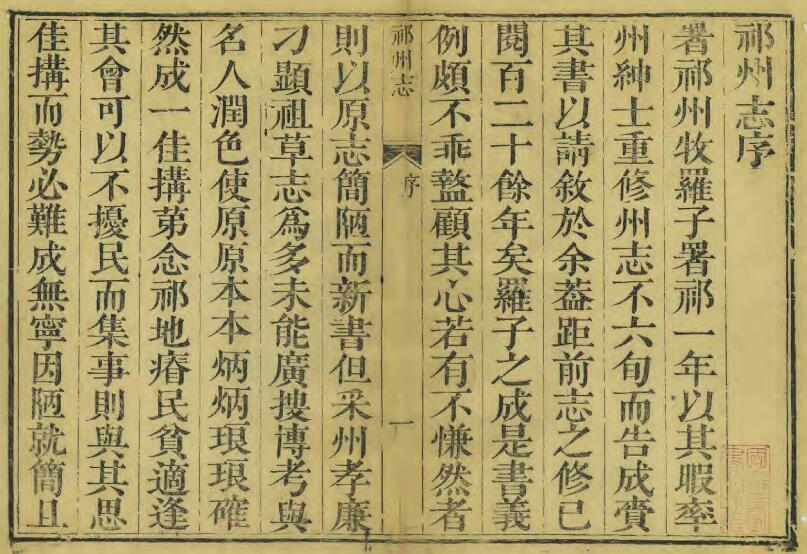 祁州志序
署祁州牧羅子署祁一年以其暇率
州紳士重修州志不六旬而告成賫
其書以請敘於余葢距前志之修已
閱百二十餘年矣羅子之成是書義
例頗不乖盭顧其心若有不慊然者
祁州志
序
一
則以原志簡陋而新書但采州孝廉
刁顯祖草志為多未能廣搜博考與
名人潤色使原原本本炳炳琅琅確
然成一佳搆第念祁地瘠民貧適逢
其會可以不擾民而集事則與其思
佳搆而勢必難成無寧因陋就簡且